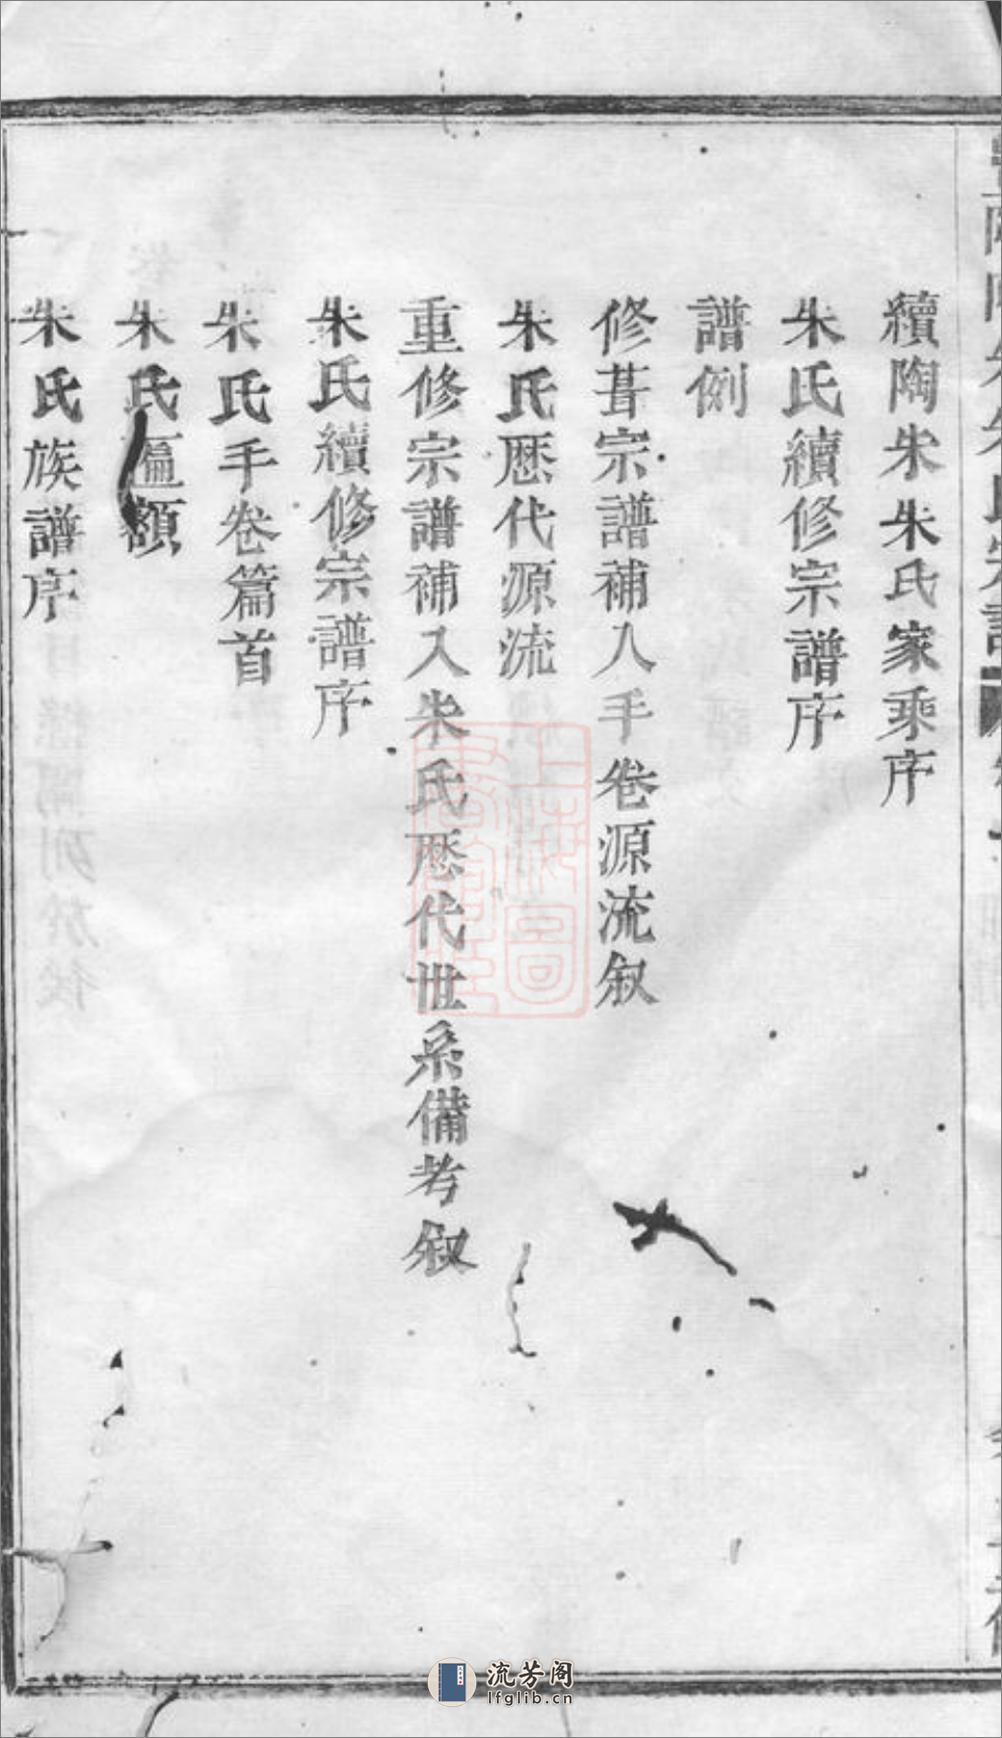 續陶朱朱氏家乘序
朱氏續修宗譜序
譜例
修葺宗譜補入手卷源流叙
朱氏歷代源流
重修宗譜補入朱氏歷代世系備考叙
朱氏續修宗譜序
朱氏手卷篇首
朱氏匾額
朱氏族譜序
上海圖書館藏
流芳阁
lfglib.cn